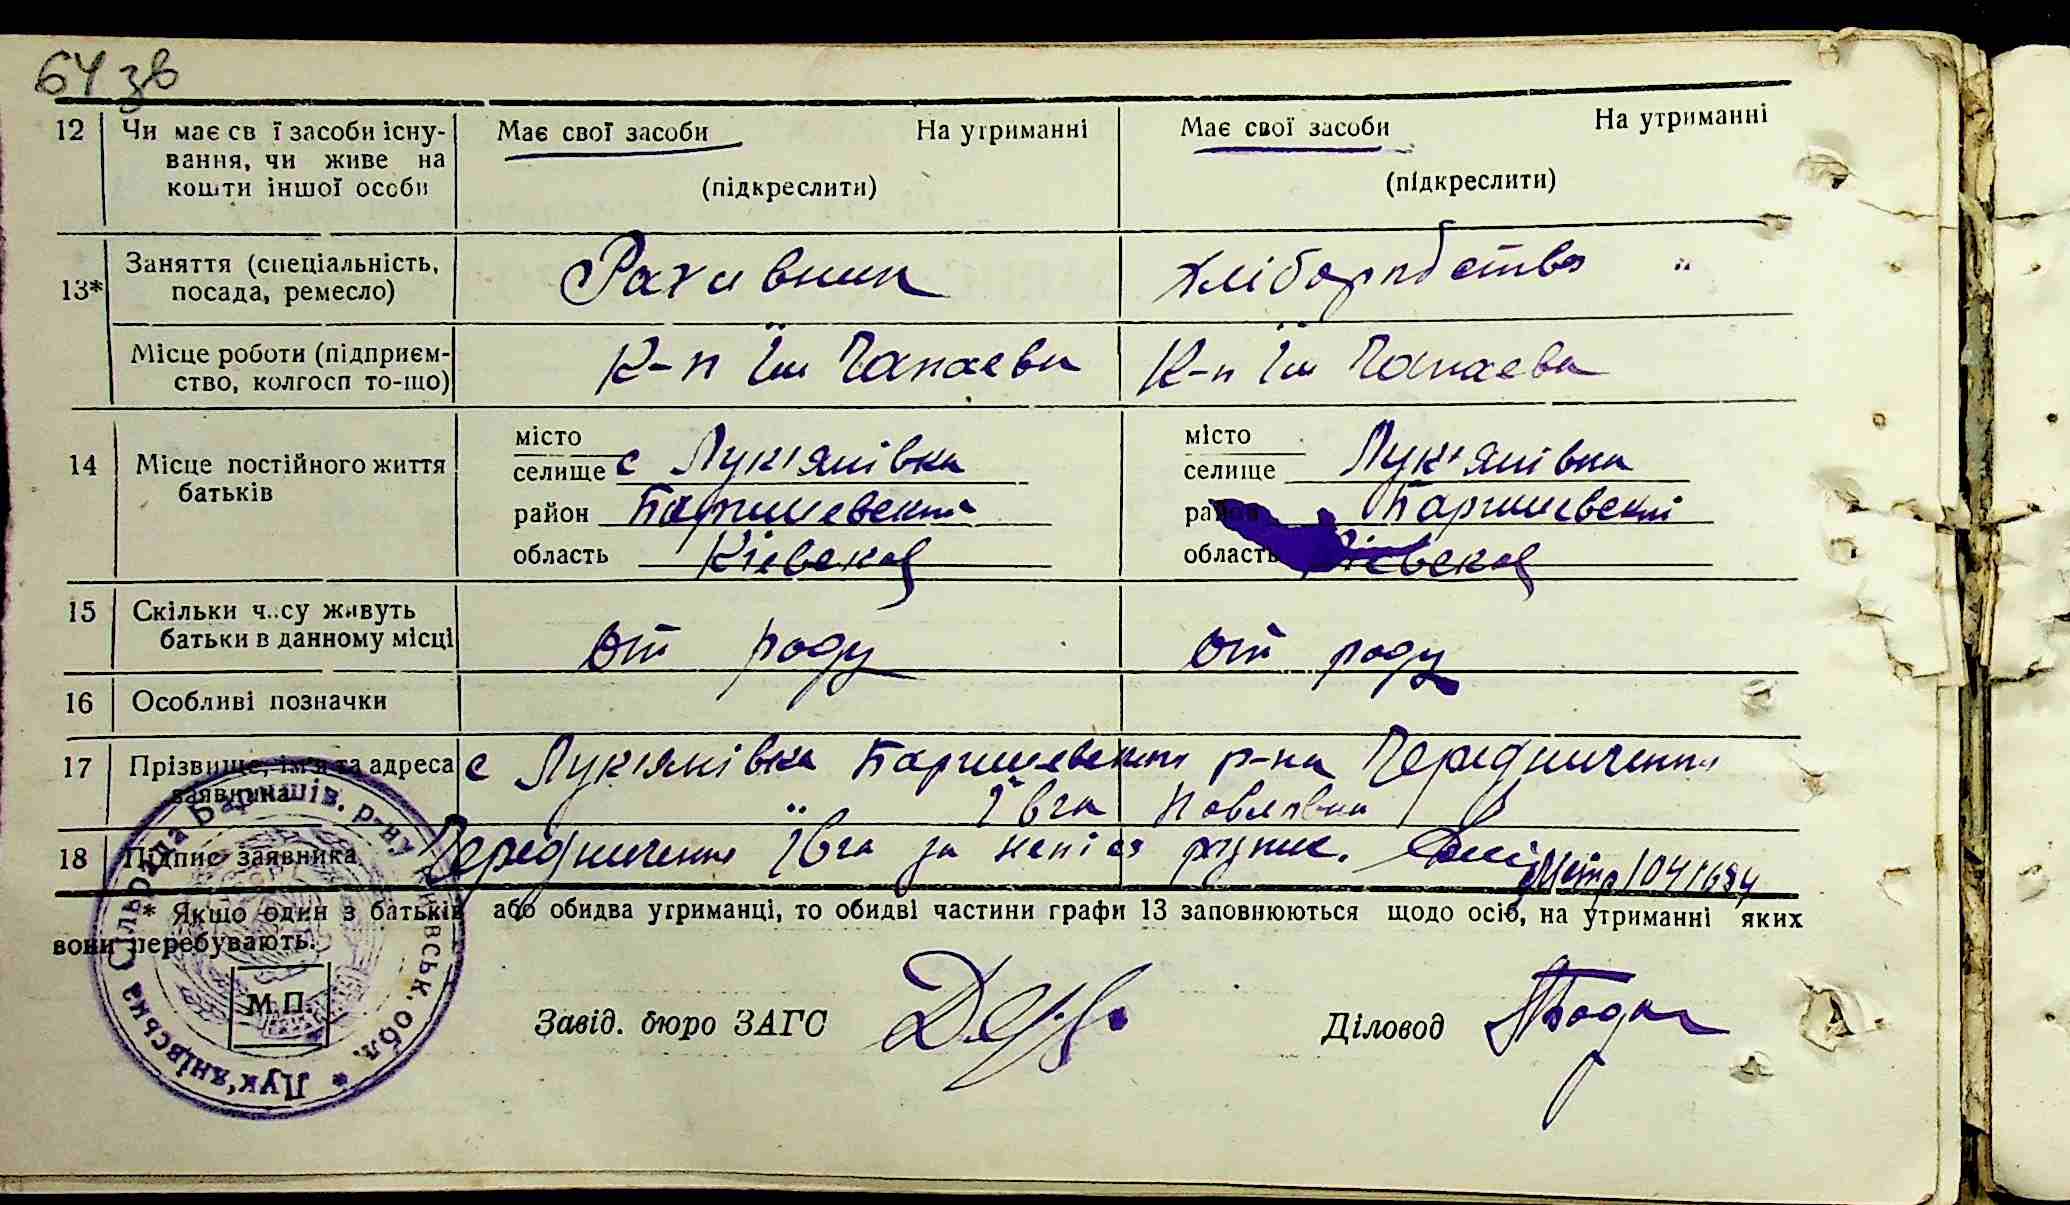 64 зв
12 Чи має св ї засоби існу-вання, чи живе на кошти іншої особи
Має свої засоби На утриманні
(підкреслити)
Має свої засоби На утриманні
(підкреслити)
13* Заняття (спеціальність, посада, ремесло)
Рахивник
Хліборобство "
Місце роботи (підприєм-ство, колгосп то-що)
К-п Їм Чапаева
К-п Їм Чапаева
14 Місце постійного життя батьків
місто
селище с Лук'янівка
район Баришевский
область Кіевская
місто
селище Лук'янівка
район Баришевскій
область Кіевская
15 Скільки ч..су живуть батьки в данному місці
От роду
От роду
16 Особливі позначки
17 Прізвище, ім'я та адреса заявника
с Лук'янівка Баришевский р-на Чередниченко
Ївга Павлівна
18 Підпис заявника
Чередниченко Ївга за
* Якщо один з батьків або обидва утриманці, то обидві частини графи 13 заповнюються щодо осіб, на утриманні яких
вони перебувають.
М.П.
Завід. бюро ЗАГС
Діловод
Лук'янівська Сільрада Баришів. р-ну Київськ. обл. *